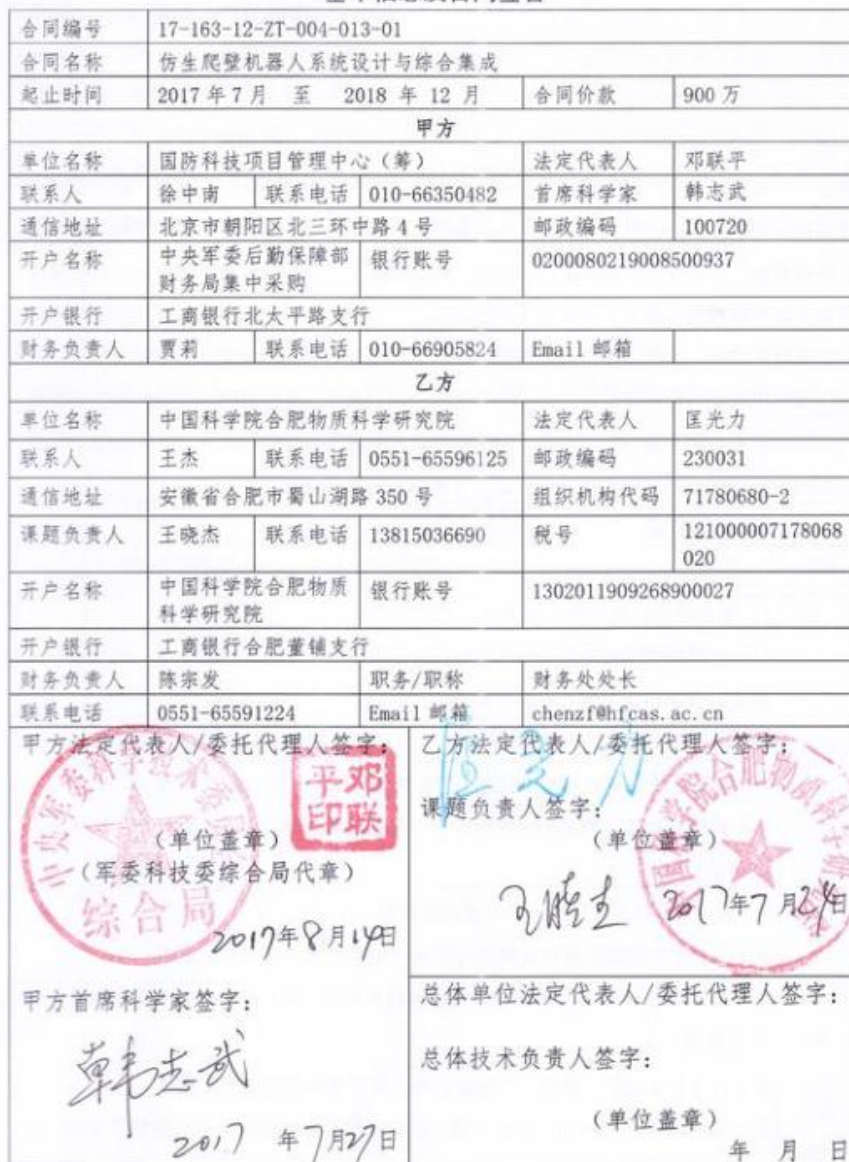 合同编号 17-163-12-ZT-004-013-01
合同名称 仿生爬壁机器人系统设计与综合集成
起止时间 2017年7月 至 2018 年 12 月 合同价款 900 万
甲方
单位名称 国防科技项目管理中心（筹） 法定代表人 邓联平
联系人 徐中南 联系电话 010-66350482 首席科学家 韩志武
通信地址 北京市朝阳区北三环中路 4 号 邮政编码 100720
开户名称 中央军委后勤保障部 银行账号 0200080219008500937
财务局集中采购
开户银行 工商银行北太平路支行
财务负责人 贾莉 联系电话 010-66905824 Email 邮箱
乙方
单位名称 中国科学院合肥物质科学研究院 法定代表人 匡光力
联系人 王杰 联系电话 0551-65596125 邮政编码 230031
通信地址 安徽省合肥市蜀山湖路 350 号 组织机构代码 71780680-2
课题负责人 王晓杰 联系电话 13815036690 税号 121000007178068
020
开户名称 中国科学院合肥物质 银行账号 1302011909268900027
科学研究院
开户银行 工商银行合肥董铺支行
财务负责人 陈宗发 职务/职称 财务处处长
联系电话 0551-65591224 Email 邮箱 chenzf@hfcas.ac.cn
甲方法定代表人/委托代理人签字：
邓联平印
（单位盖章）
（军委科技委综合局代章）
综合局
2017年8月14日
甲方首席科学家签字：
韩志武
2017 年7月27日
乙方法定代表人/委托代理人签字：
匡光力
课题负责人签字：
（单位盖章）
王晓杰 2017年7月24日
总体单位法定代表人/委托代理人签字：
总体技术负责人签字：
（单位盖章）
年 月 日